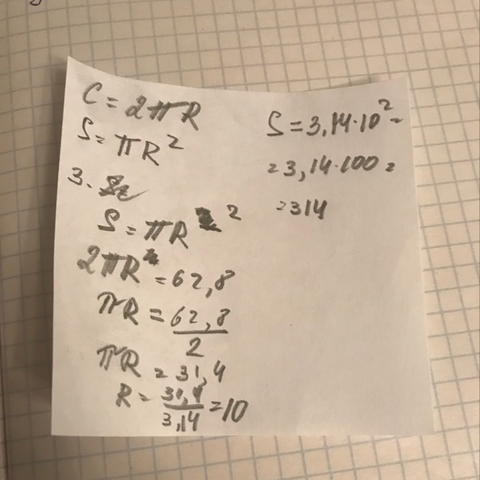 C = 2πR
S = πR²
3.
S = πR²
2πR = 62,8
πR = 62,8/2
πR = 31,4
R = 31,4/3,14 = 10
S = 3,14·10² =
= 3,14·100 =
= 314